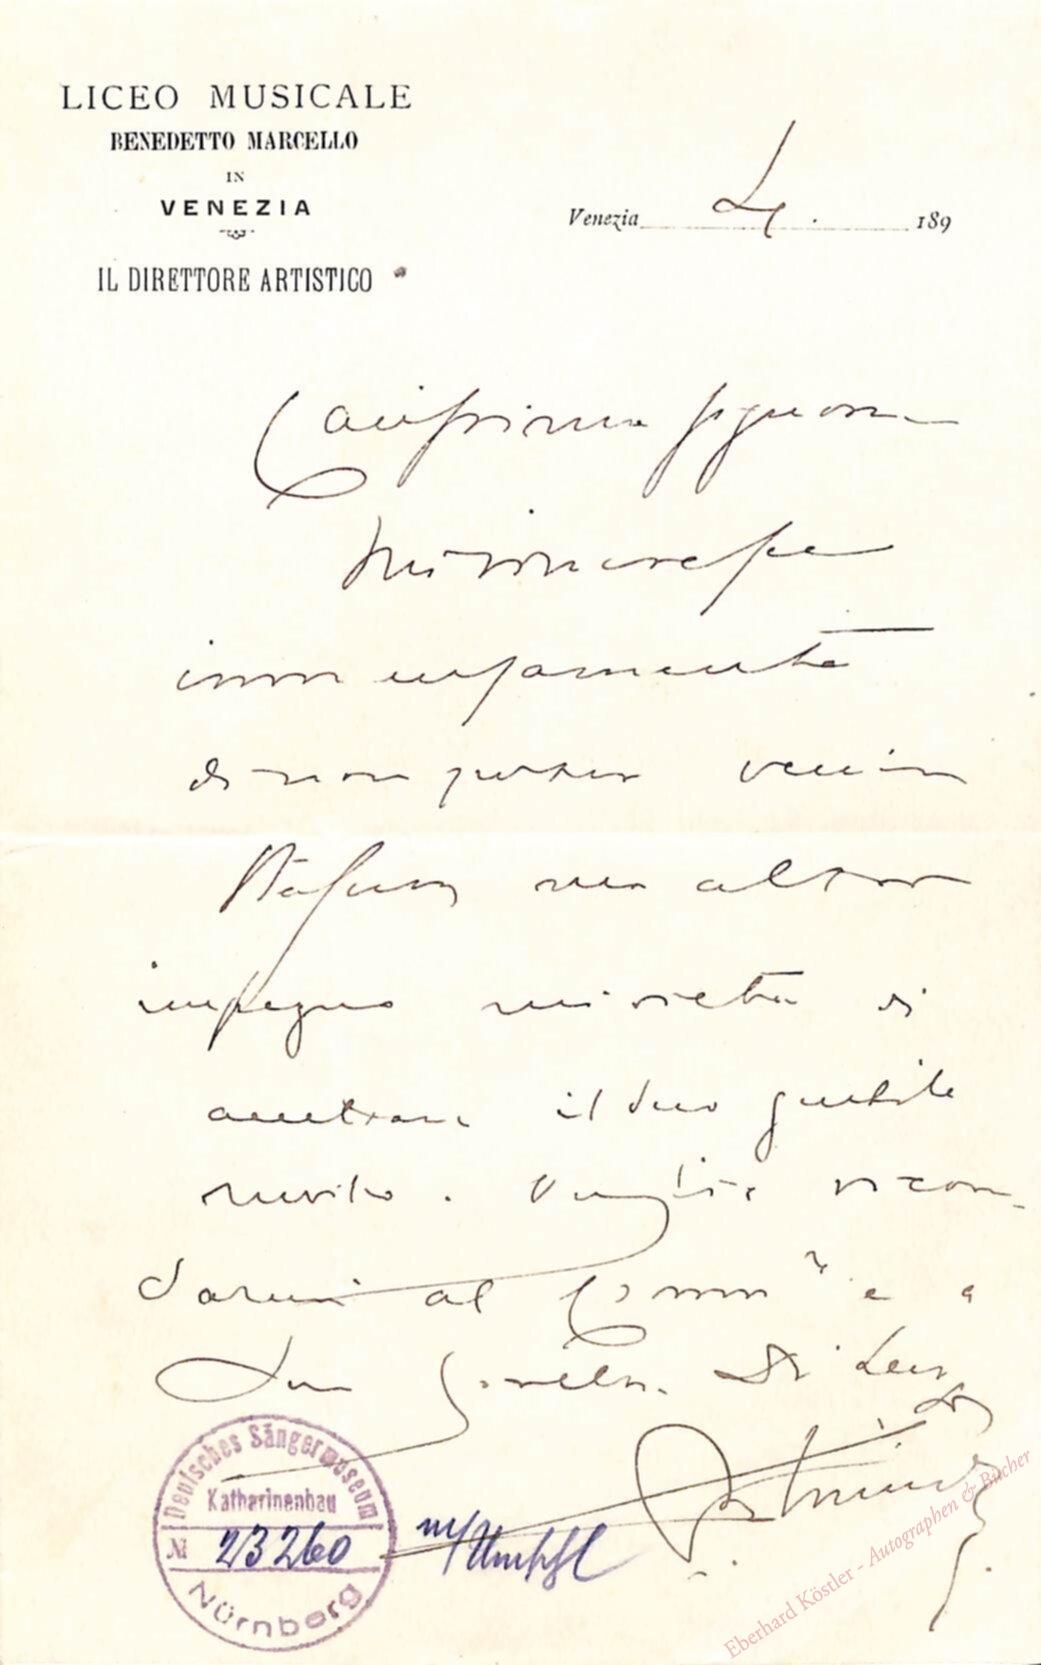 LICEO MUSICALE
BENEDETTO MARCELLO
IN
VENEZIA
IL DIRETTORE ARTISTICO
Venezia 4. 189
Carissima Signora
Mi rincresce
immensamente
di non poter venire
Stasera un altro
impegno mi vieta di
accettare il Suo gentile
invito. Voglia ricor-
darmi al Comm.re e a
Sua Sorella. Di Lei
Deutsches Sängermuseum
Katharinenbau
№ 23260
Nürnberg
m/Umschl
Eberhard Köstler - Autographen & Bücher